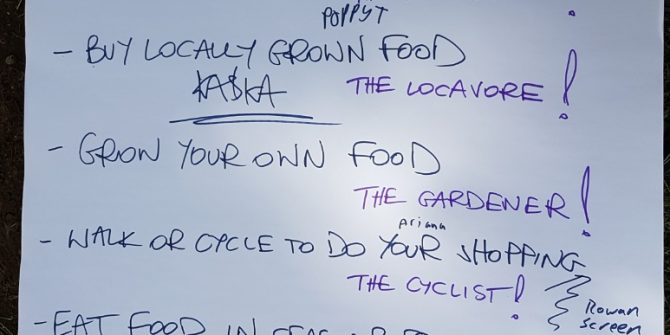 POPPYT
- BUY LOCALLY GROWN FOOD
KASKA THE LOCAVORE!
- GROW YOUR OWN FOOD
THE GARDENER!
ariana
- WALK OR CYCLE TO DO YOUR SHOPPING
THE CYCLIST!
Rowan
screen
- EAT FOOD IN